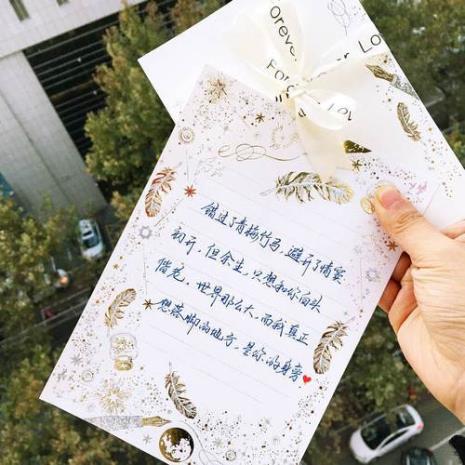 orever
Lo
For
Lov
错过了青梅竹马，避开了情窦
初开，但余生，只想和你白头
偕老，世界那么大，而我真正
想落脚的地方，是你的身旁